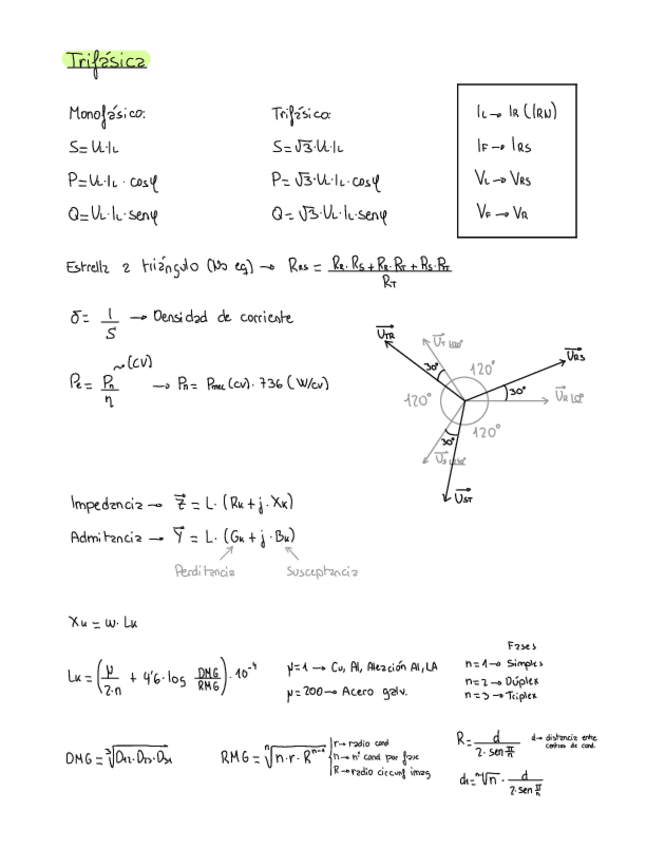 Trifásica
Monofásico:
Trifásico:
S=U·IL
S=√3·U·IL
P=UL·IL·cosφ
P=√3·UL·IL·cosφ
Q=UL·IL·senφ
Q=√3·UL·IL·senφ
IL→ IR (IRN)
IF→ IRS
VL→ VRS
VF→ VR
Estrella a triángulo (No eq) → RRS = (RR·RS+RR·RT+RS·RT)/RT
δ= I/S → Densidad de corriente
Pe= Pn/η → (CV) → Pn= Pmec(cv)·736 (W/cv)
UTR
UT
URS
UR |0°
US
UST
30°
30°
30°
120°
120°
120°
Impedancia → Z = L·(Rk+j·Xk)
Admitancia → Y = L·(Gk+j·Bk)
Perditancia
Susceptancia
Xk=ω·Lk
Lk=(μ/2·n + 4'6·log DMG/RMG)·10⁻⁴
μ=1→ Cu, Al, Aleación Al, LA
μ=200→ Acero galv.
Fases
n=1→ Simplex
n=2→ Dúplex
n=3→ Triplex
DMG=³√D12·D23·D31
RMG=ⁿ√n·r·Rⁿ⁻¹
r→ radio cond
n→ nº cond por fase
R→ radio circunf imag
R= d/2·sen π/n
d→ distancia entre
centros de cond.
d/2·sen π/n